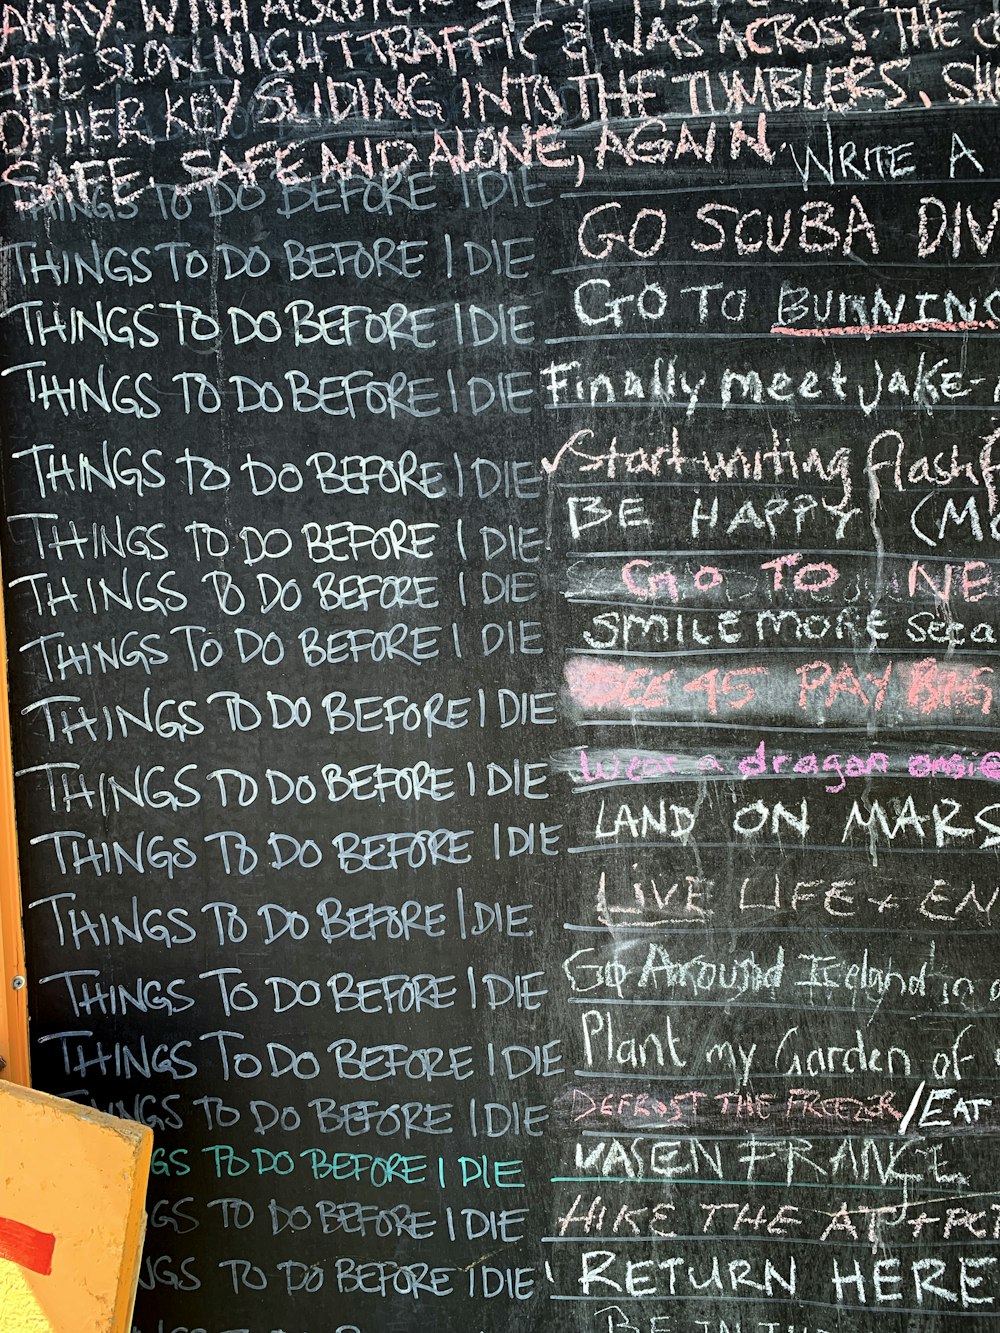 AWAY WITH
THE SLOW NIGHT TRAFFIC & WAS ACROSS. THE
OF HER KEY SLIDING INTO THE TUMBLERS,
SAFE. SAFE AND ALONE, AGAIN.
THINGS TO DO BEFORE I DIE WRITE A
THINGS TO DO BEFORE I DIE GO SCUBA DIV
THINGS TO DO BEFORE I DIE GO TO BURNING
THINGS TO DO BEFORE I DIE Finally meet Jake-
THINGS TO DO BEFORE I DIE Start writing flash
THINGS TO DO BEFORE I DIE BE HAPPY
THINGS TO DO BEFORE I DIE GO TO NE
THINGS TO DO BEFORE I DIE SMILE MORE
THINGS TO DO BEFORE I DIE SEE 45 PAY BIG
THINGS TO DO BEFORE I DIE Wear a dragon onsie
THINGS TO DO BEFORE I DIE LAND ON MARS
THINGS TO DO BEFORE I DIE LIVE LIFE + EN
THINGS TO DO BEFORE I DIE Go Around Iceland in a
THINGS TO DO BEFORE I DIE Plant my Garden of
NGS TO DO BEFORE I DIE DEFROST THE FREEZER/EAT
GS TO DO BEFORE I DIE FRANCE
GS TO DO BEFORE I DIE HIKE THE AT + PC
NGS TO DO BEFORE I DIE! RETURN HERE
BE IN